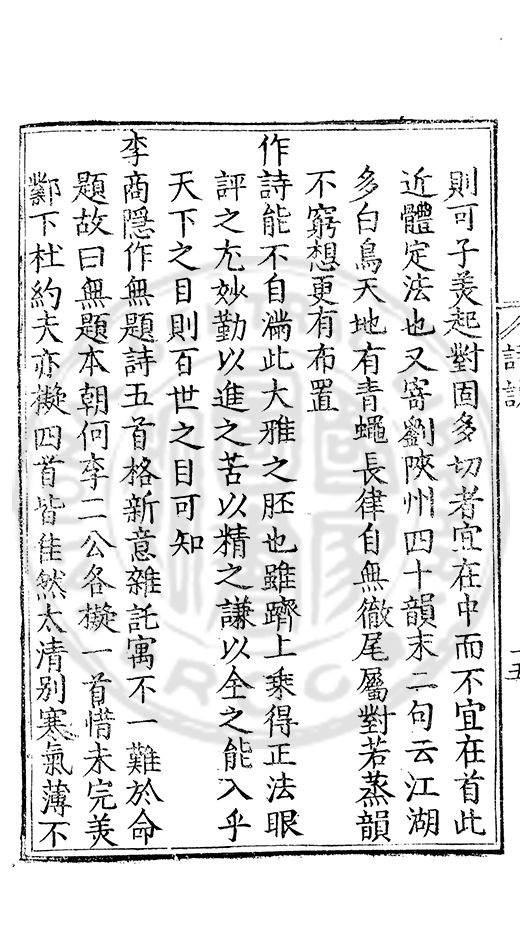 則可子美起對固多切者宜在中而不宜在首此
近體定法也又寄劉陝州四十韻末二句云江湖
多白鳥天地有青蠅長律自無徹尾屬對若蒸韻
不窮想更有布置
作詩能不自滿此大雅之胚也雖躋上乘得正法眼
評之尤妙勤以進之苦以精之謙以全之能入乎
天下之目則百世之目可知
李商隱作無題詩五首格新意雜託寓不一難於命
題故曰無題本朝何李二公各擬一首惜未完美
酇下杜約夫亦擬四首皆佳然太清別寒氣薄不